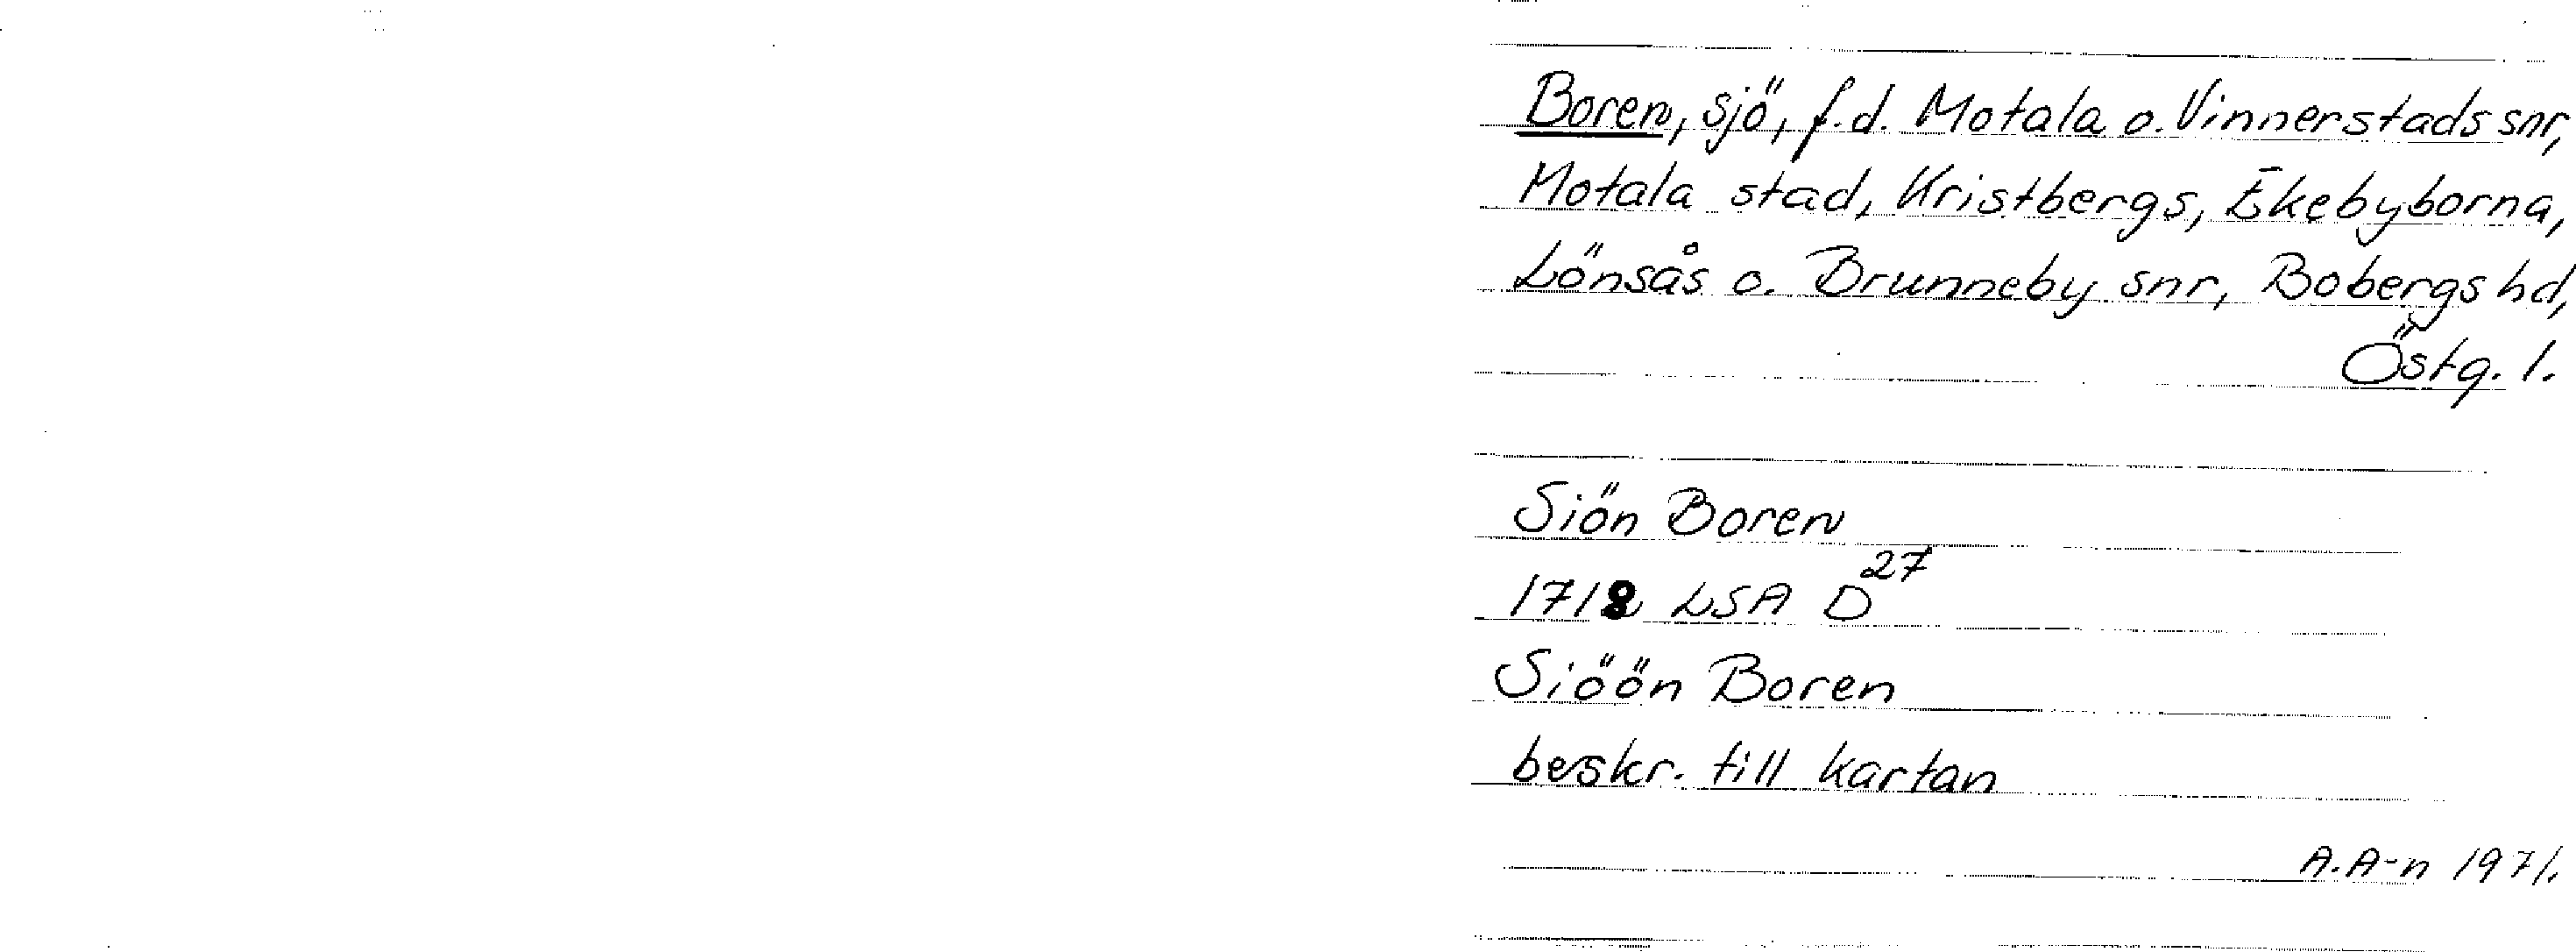 Boren, sjö, f.d. Motala o. Vinnerstads snr,
Motala stad, Kristbergs, Ekebyborna,
Lönsås o. Brunneby snr, Bobergs hd,
Östg. l.
Siön Boren
1718 LSA D27
Siöön Boren
beskr. till kartan
A.A-n 1971.